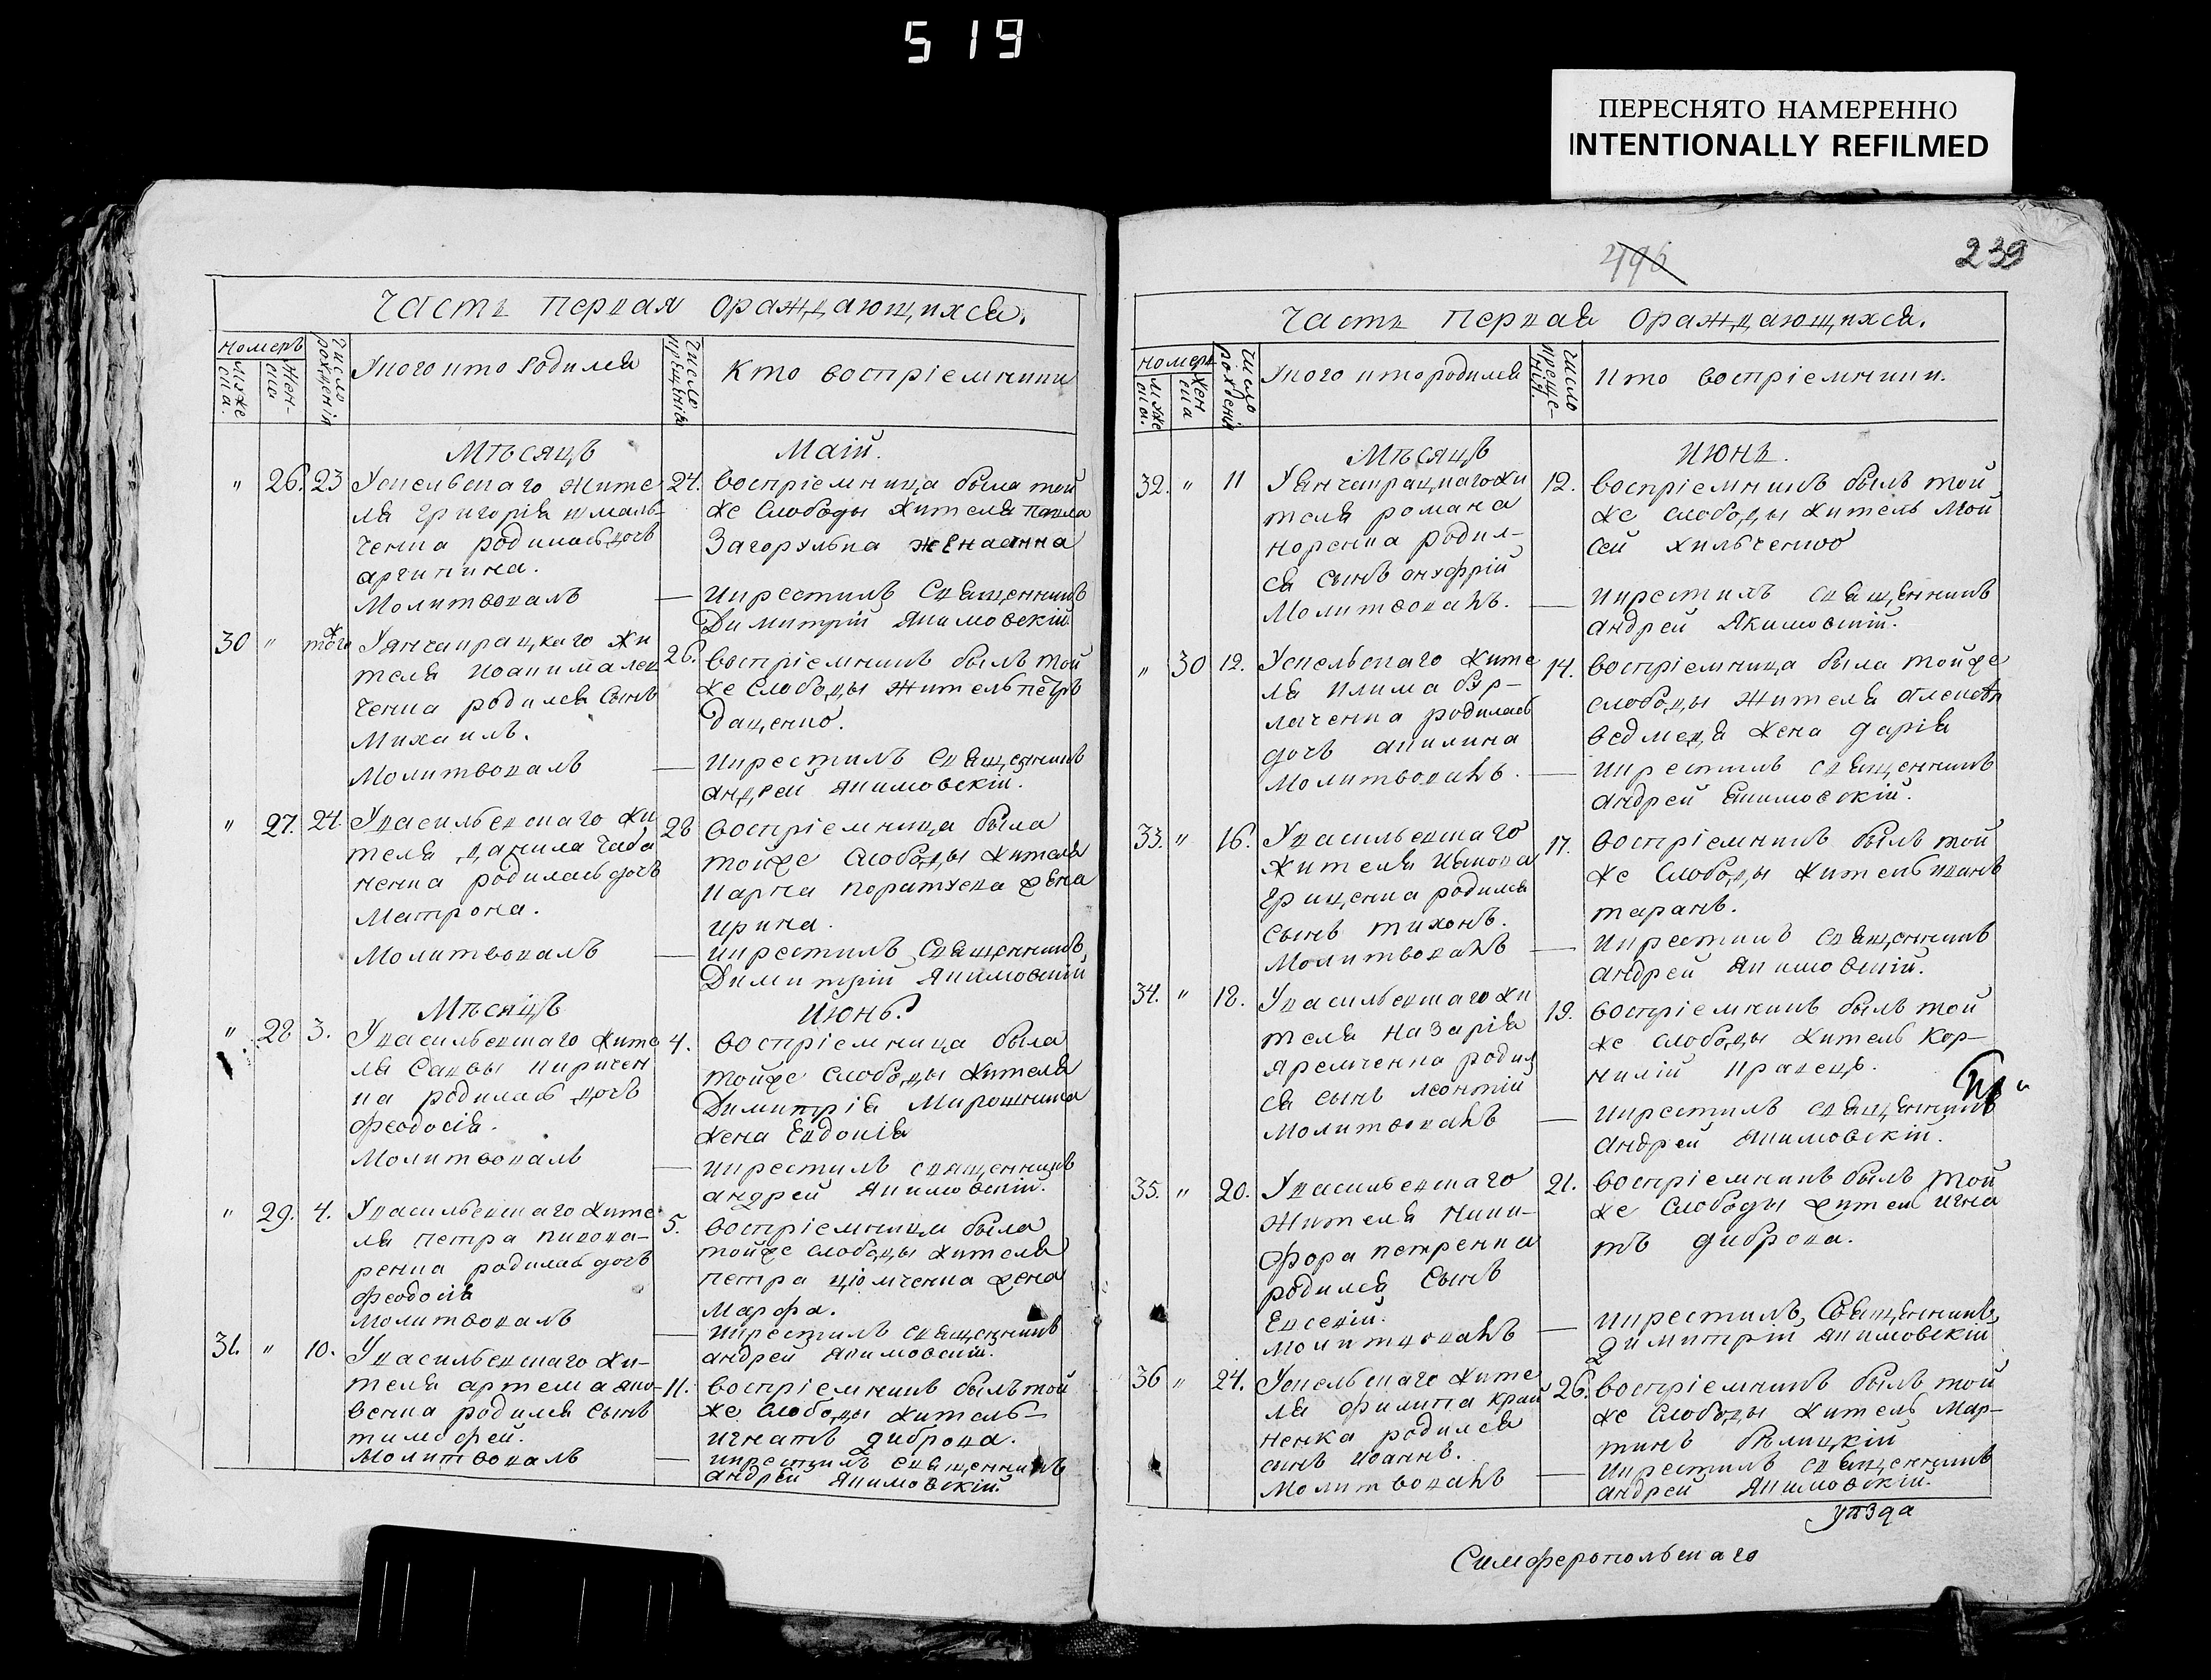 519
ПЕРЕСНЯТО НАМЕРЕННО
INTENTIONALLY REFILMED
Часть первая ораждающихся.
номеръ
муже
ска.
Жен-
ска
Число
рождения
Укого икто родился
Число
крещенія
Кто воспріемники
Мѣсяцъ Маій.
" 26. 23 Ускельскаго жите
ля Григорія шмаль-
ченка родиласьдочь
агрипина.
Молитвовалъ
24. воспріемница была той
же Слободы жителя павла
Загорулька жена анна
икрестилъ Священникъ
Димитрій Якимовскій
30 " тогож Уянчакрацкаго жи
теля Иоакима лев
ченка родился Сынъ
Михаилъ.
Молитвовалъ
26. воспріемникъ былъ той
же Слободы житель петръ
Даценко.
икрестилъ Священникъ
андрей Якимовскій.
" 27. 24. Увасильевскаго жи
теля данила Чаба
ненка родилась дочь
Матрона.
Молитвовалъ
28 воспріемница была
тойже Слободы жителя
карпа Коратуева жена
ирина.
икрестилъ Священникъ
Димитрій Якимовскій
Мѣсяцъ Июнь.
" 28 3. Увасильевскаго жите
ля Саввы киричен
ка родилась дочь
феодосія.
Молитвовалъ
4. воспріемница была
тойже Слободы жителя
Димитрія Мирошника
жена Евдокія
икрестилъ священникъ
андрей Якимовскій.
" 29. 4. Увасильевскаго жите
ля петра пивова-
ренка родилась дочь
феодосія
молитвовалъ
5. воспріемница была
тойже слободы жителя
петра цюмченка жена
Марфа.
икрестилъ священникъ
андрей Якимовскій.
31. " 10. Увасильевскаго жи-
теля артема яко-
венка родился сынъ
тимофей.
Молитвовалъ
11. воспріемникъ былъ той
же Слободы житель
игнатъ диброва.
икрестилъ священникъ
андрей Якимовскій.
496
239
Часть первая ораждающихся.
номеръ
муже
ска.
жен
ска
Число
рожденія
Укого ктородился
Число
креще-
нія.
кто воспріемники.
Мѣсяцъ Июнь.
32. " 11 Уянчакрацкаго жи
теля романа
норенка родил-
ся сынъ онуфрій
Молитвовалъ.
12. воспріемникъ былъ той
же слободы житель Мой
сей хильченко
икрестилъ священникъ
андрей Якимовскій.
" 30 12. Ускельскаго жите
ля клима бур-
лаченка родилась
дочь акилина
Молитвовалъ.
14. воспріемница была тойже
слободы жителя алексѣя
ведмедя жена дарія
икрестилъ священникъ
андрей Якимовскій.
33. " 16. Увасильевскаго
жителя Иакова
Гриценка родился
сынъ тихонъ.
Молитвовалъ
17. воспріемникъ былъ той
же Слободы житель иванъ
таранъ.
икрестилъ священникъ
андрей Якимовскій.
34. " 18. Увасильевскаго жи
теля Назарія
яремченка родил
ся сынъ леонтій
молитвовалъ
19. воспріемникъ былъ той
же слободы житель Кор-
нилій кравецъ.
икрестилъ священникъ
андрей Якимовскій.
35. " 20. Увасильевскаго
жителя Ники-
фора петренка
родился Сынъ
Евсевій.
молитвовалъ
21. воспріемникъ былъ той
же Слободы жител Игна
тъ диброва.
икрестилъ Священникъ
димитрій Якимовскій
36 " 24. Ускельскаго жите
ля филипа край
ненка родился
синъ иоаннъ.
Молитвовалъ
26. воспріемникъ былъ той
же Слободы житель Мар-
тинъ бѣлицкій
икрестилъ священникъ
андрей Якимовскій.
уѣзда
Симферопольскаго